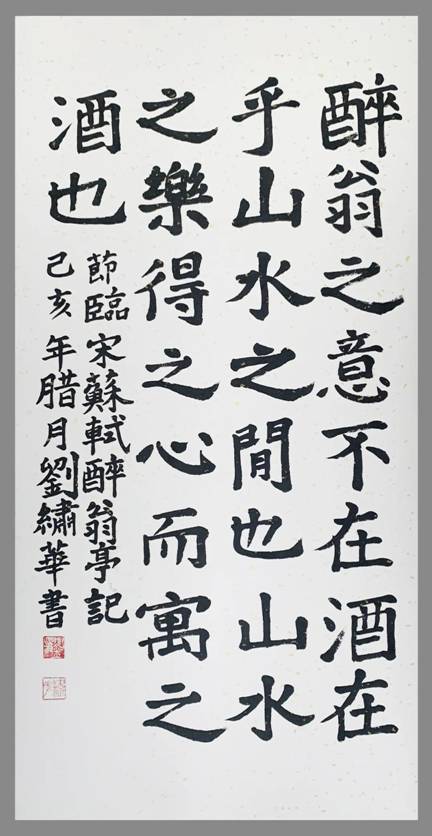 醉翁之意不在酒在
乎山水之間也山水
之樂得之心而寓之
酒也
節臨宋蘇軾醉翁亭記
己亥年腊月劉繡華書